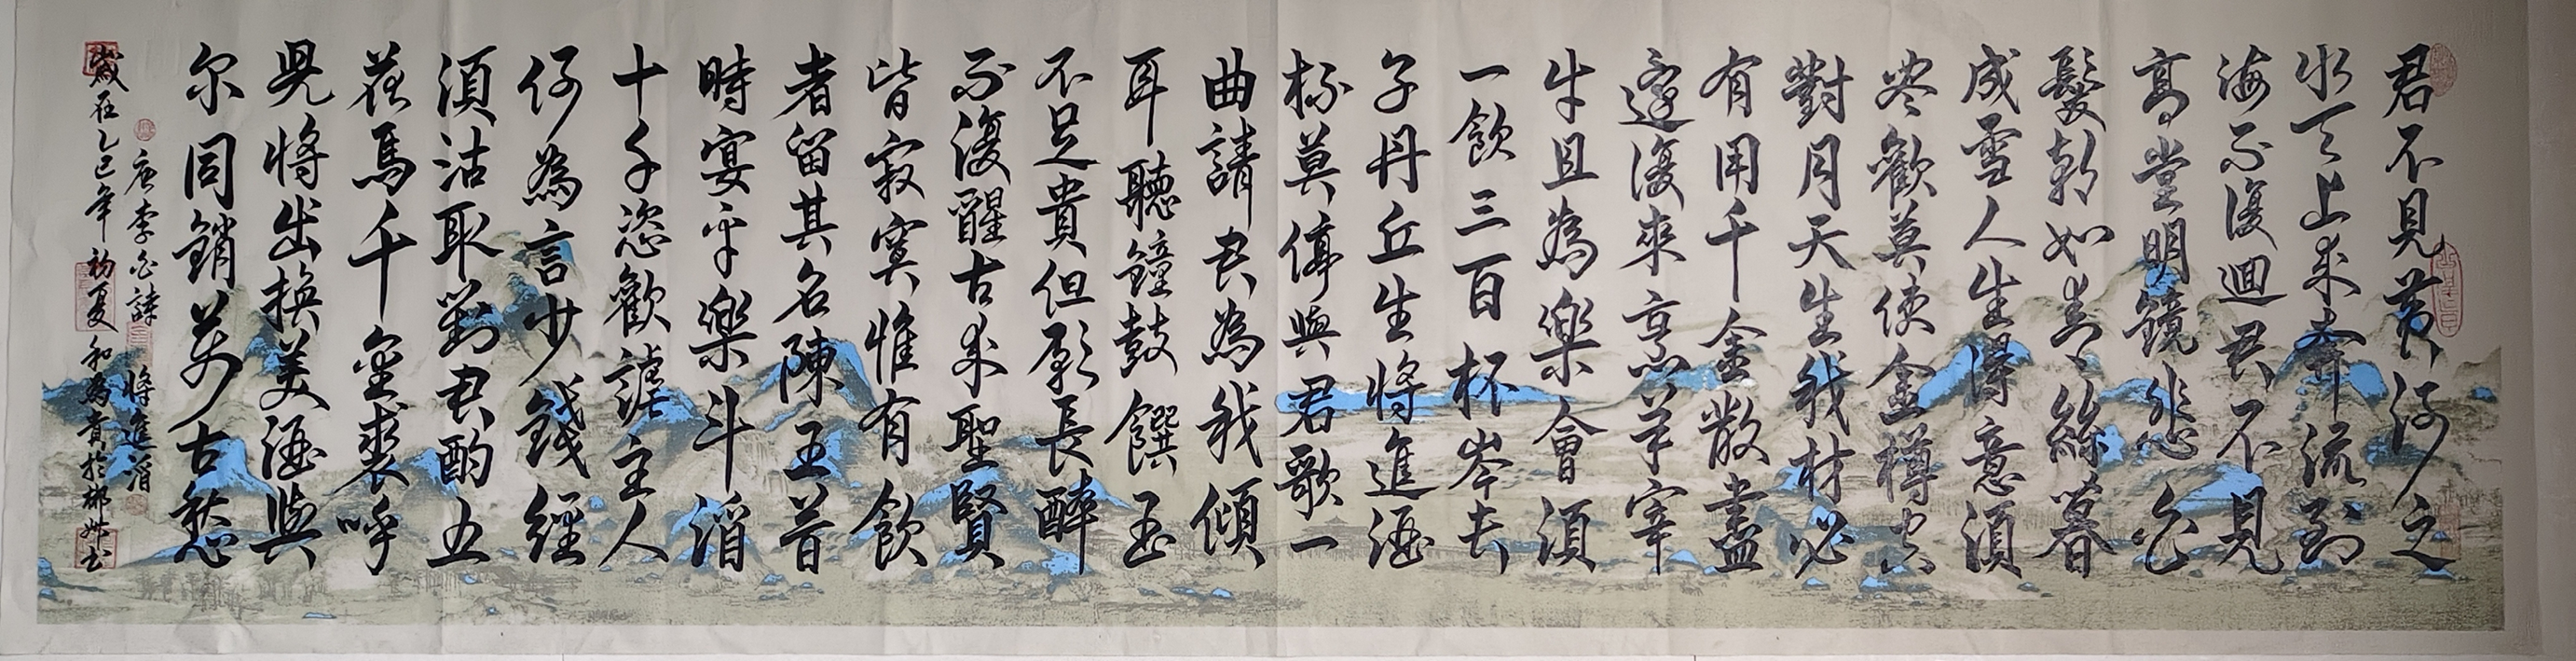 君不見黃河之
水天上來奔流到
海不復迴君不見
高堂明鏡悲白
髮朝如青絲暮
成雪人生得意須
盡歡莫使金樽空
對月天生我材必
有用千金散盡
還復來烹羊宰
牛且為樂會須
一飲三百杯岑夫
子丹丘生將進酒
杯莫停與君歌一
曲請君為我傾
耳聽鐘鼓饌玉
不足貴但願長醉
不復醒古來聖賢
皆寂寞惟有飲
者留其名陳王昔
時宴平樂斗酒
十千恣歡謔主人
何為言少錢經
須沽取對君酌五
花馬千金裘呼
兒將出換美酒與
尔同銷萬古愁
唐李白詩 將進酒
歲在乙巳年初夏和為貴於鄭州書